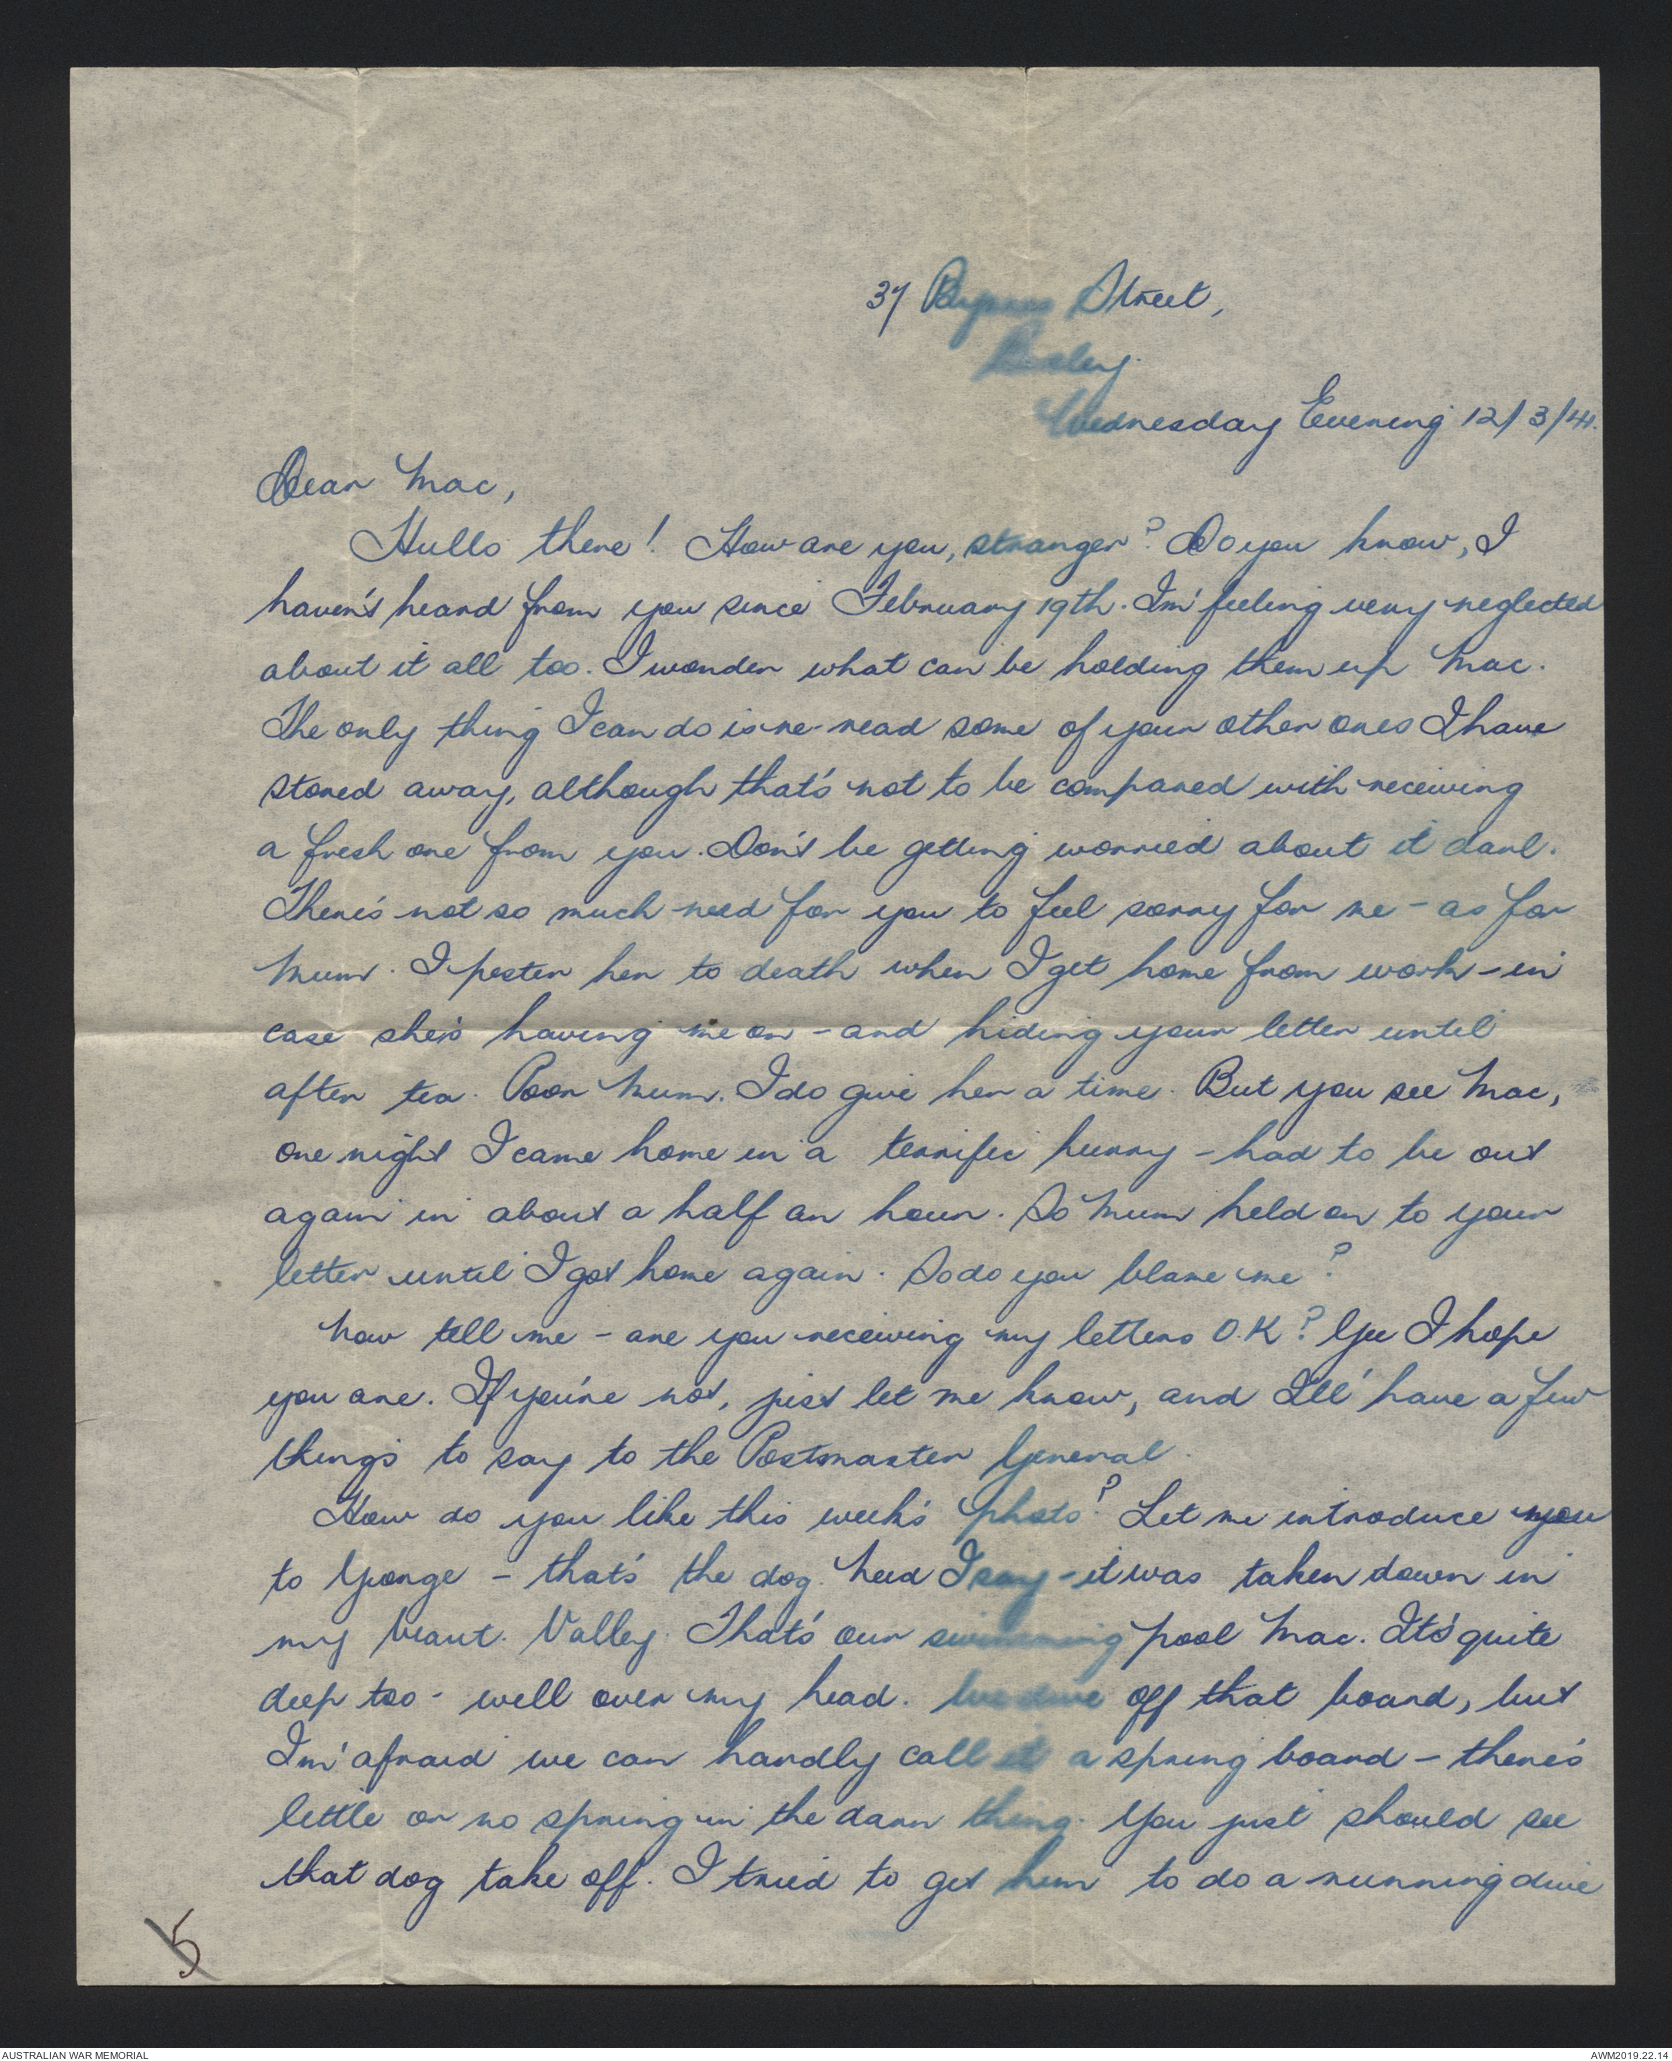 37 Street,
Bexley.
Wednesday Evening 12/3/41.
Dear Mac,
Hullo there! How are you, stranger? Do you know, I
haven't heard from you since February 19th. I'm feeling very neglected
about it all too. I wonder what can be holding them up Mac.
The only thing I can do is re-read some of your other ones I have
stored away, although that's not to be compared with receiving
a fresh one from you. Don't be getting worried about it darl.
There's not so much need for you to feel sorry for me - as for
Mum. I pester her to death when I get home from work - in
case she's having me on - and hiding your letter until
after tea. Poor Mum. I do give her a time. But you see Mac,
one night I came home in a terrific hurry - had to be out
again in about a half an hour. So Mum held on to your
letter until I got home again. So do you blame me?
Now tell me - are you receiving my letters O.K? Gee I hope
you are. If you're not, just let me know, and I'll have a few
things to say to the Postmaster General.
How do you like this week's photo? Let me introduce you
to George - that's the dog. Need I say - it was taken down in
my beaut. Valley. That's our swimming pool Mac. It's quite
deep too - well over my head. We dive off that board, but
I'm afraid we can hardly call it a spring board - there's
little or no spring in the darn thing. You just should see
that dog take off. I tried to get him to do a running dive
5
AUSTRALIAN WAR MEMORIAL
AWM2019.22.14